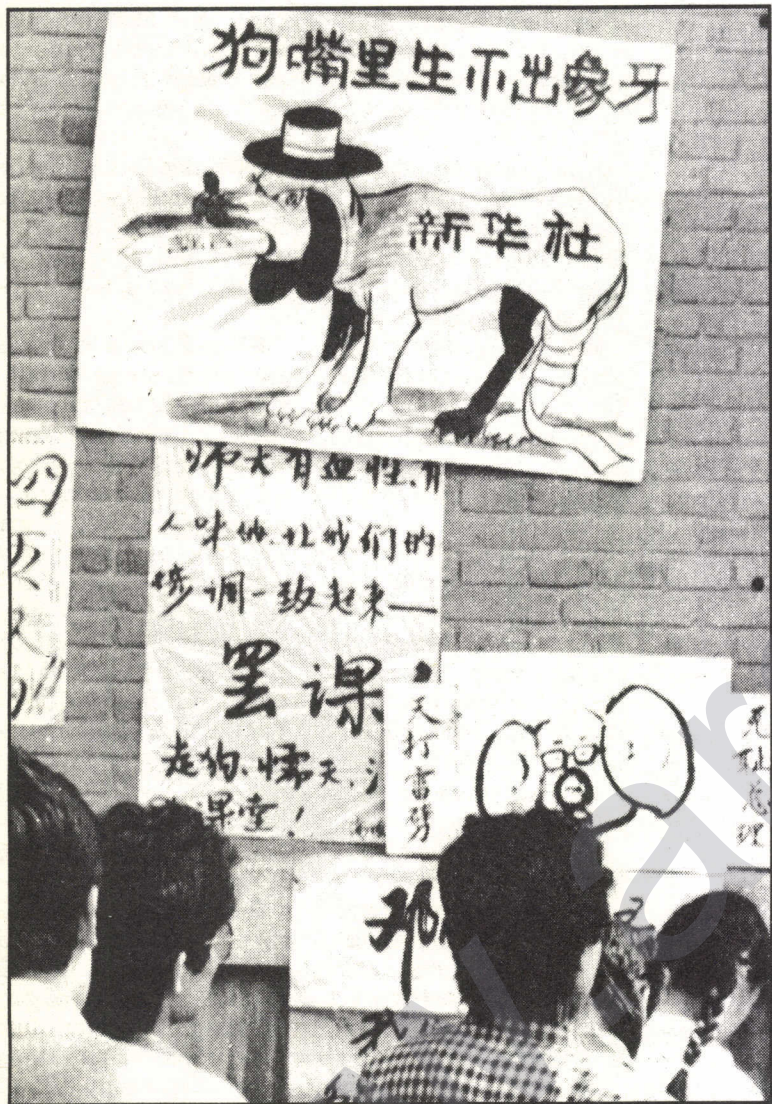 狗嘴里生不出象牙
新华社
师大有血性、有
人味的.让我们的
步调一致起来——
罢课
走狗、懦夫、
课堂!
天打雷劈
无耻总理
邓
我